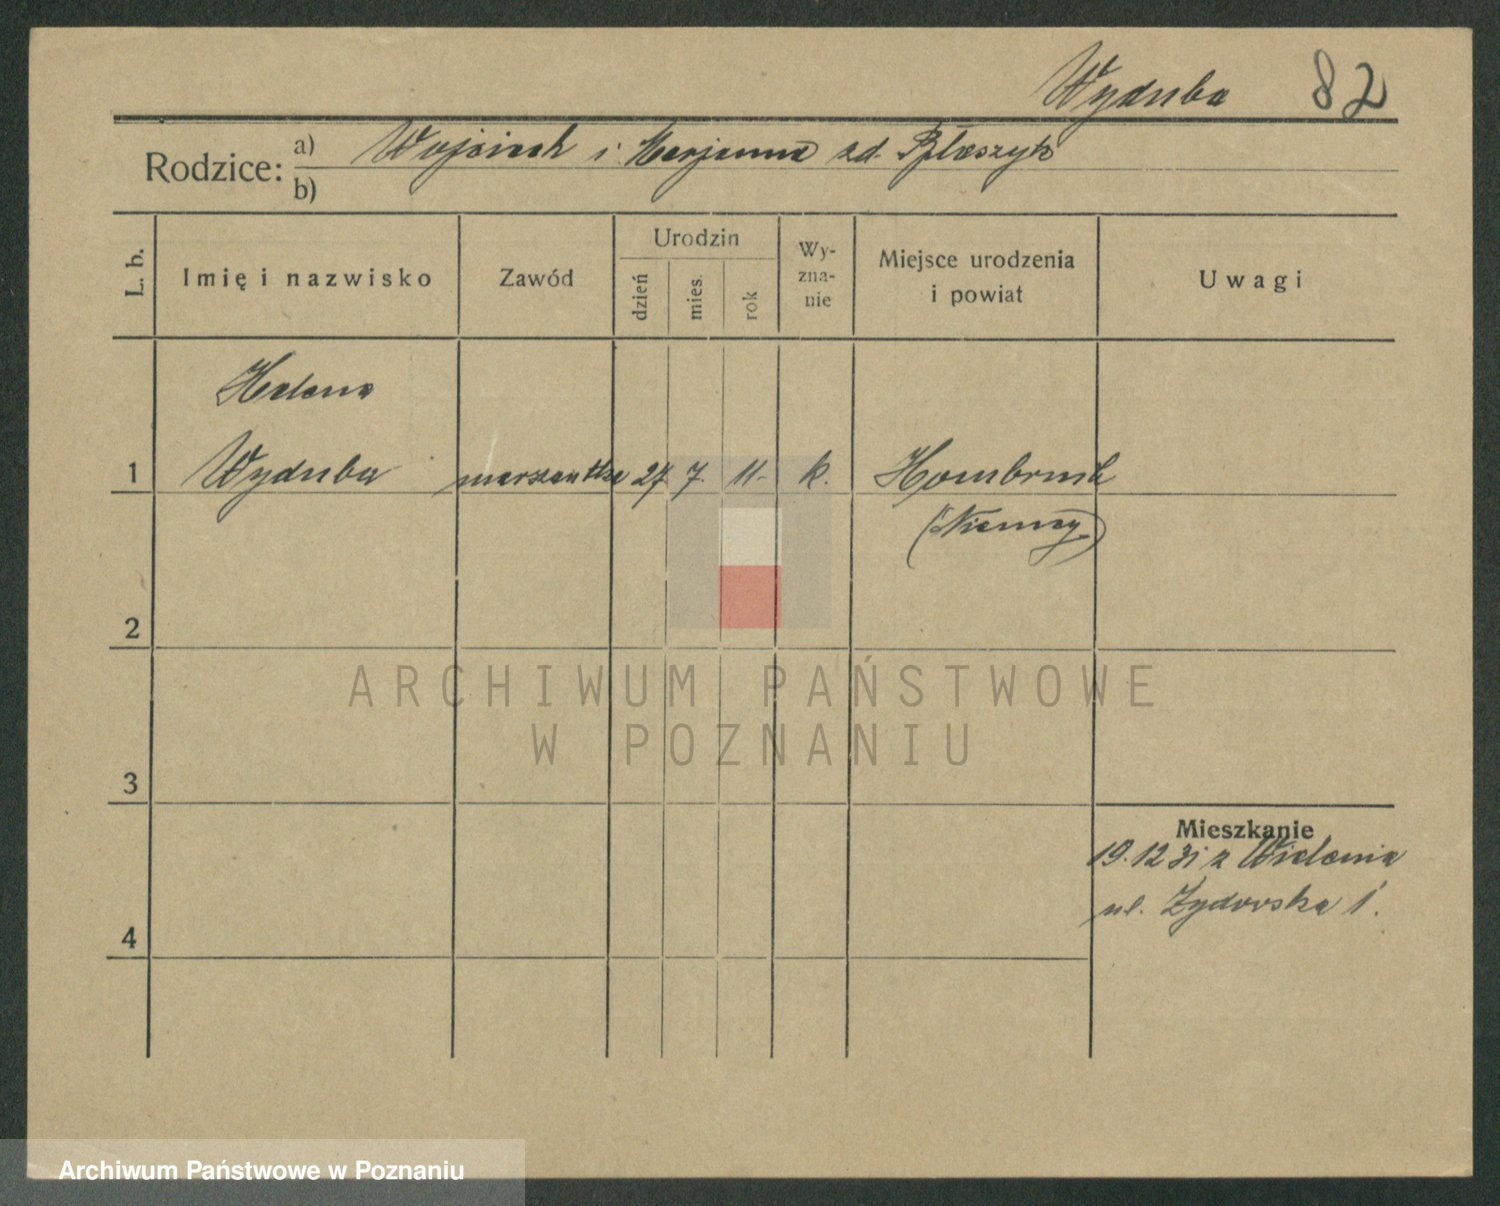 Wyduba 82
Rodzice: a) Wojciech i Marjanna zd.
b)
L. b. Imię i nazwisko Zawód Urodzin dzień mies. rok Wy-zna-nie Miejsce urodzenia i powiat Uwagi
Helena
1 Wyduba 27 7. 11. k. Hombruch
(Niemcy)
2
ARCHIWUM PAŃSTWOWE
W POZNANIU
3
Mieszkanie
19.12 31 z Wielenia
ul. Żydowska 1.
4
Archiwum Państwowe w Poznaniu